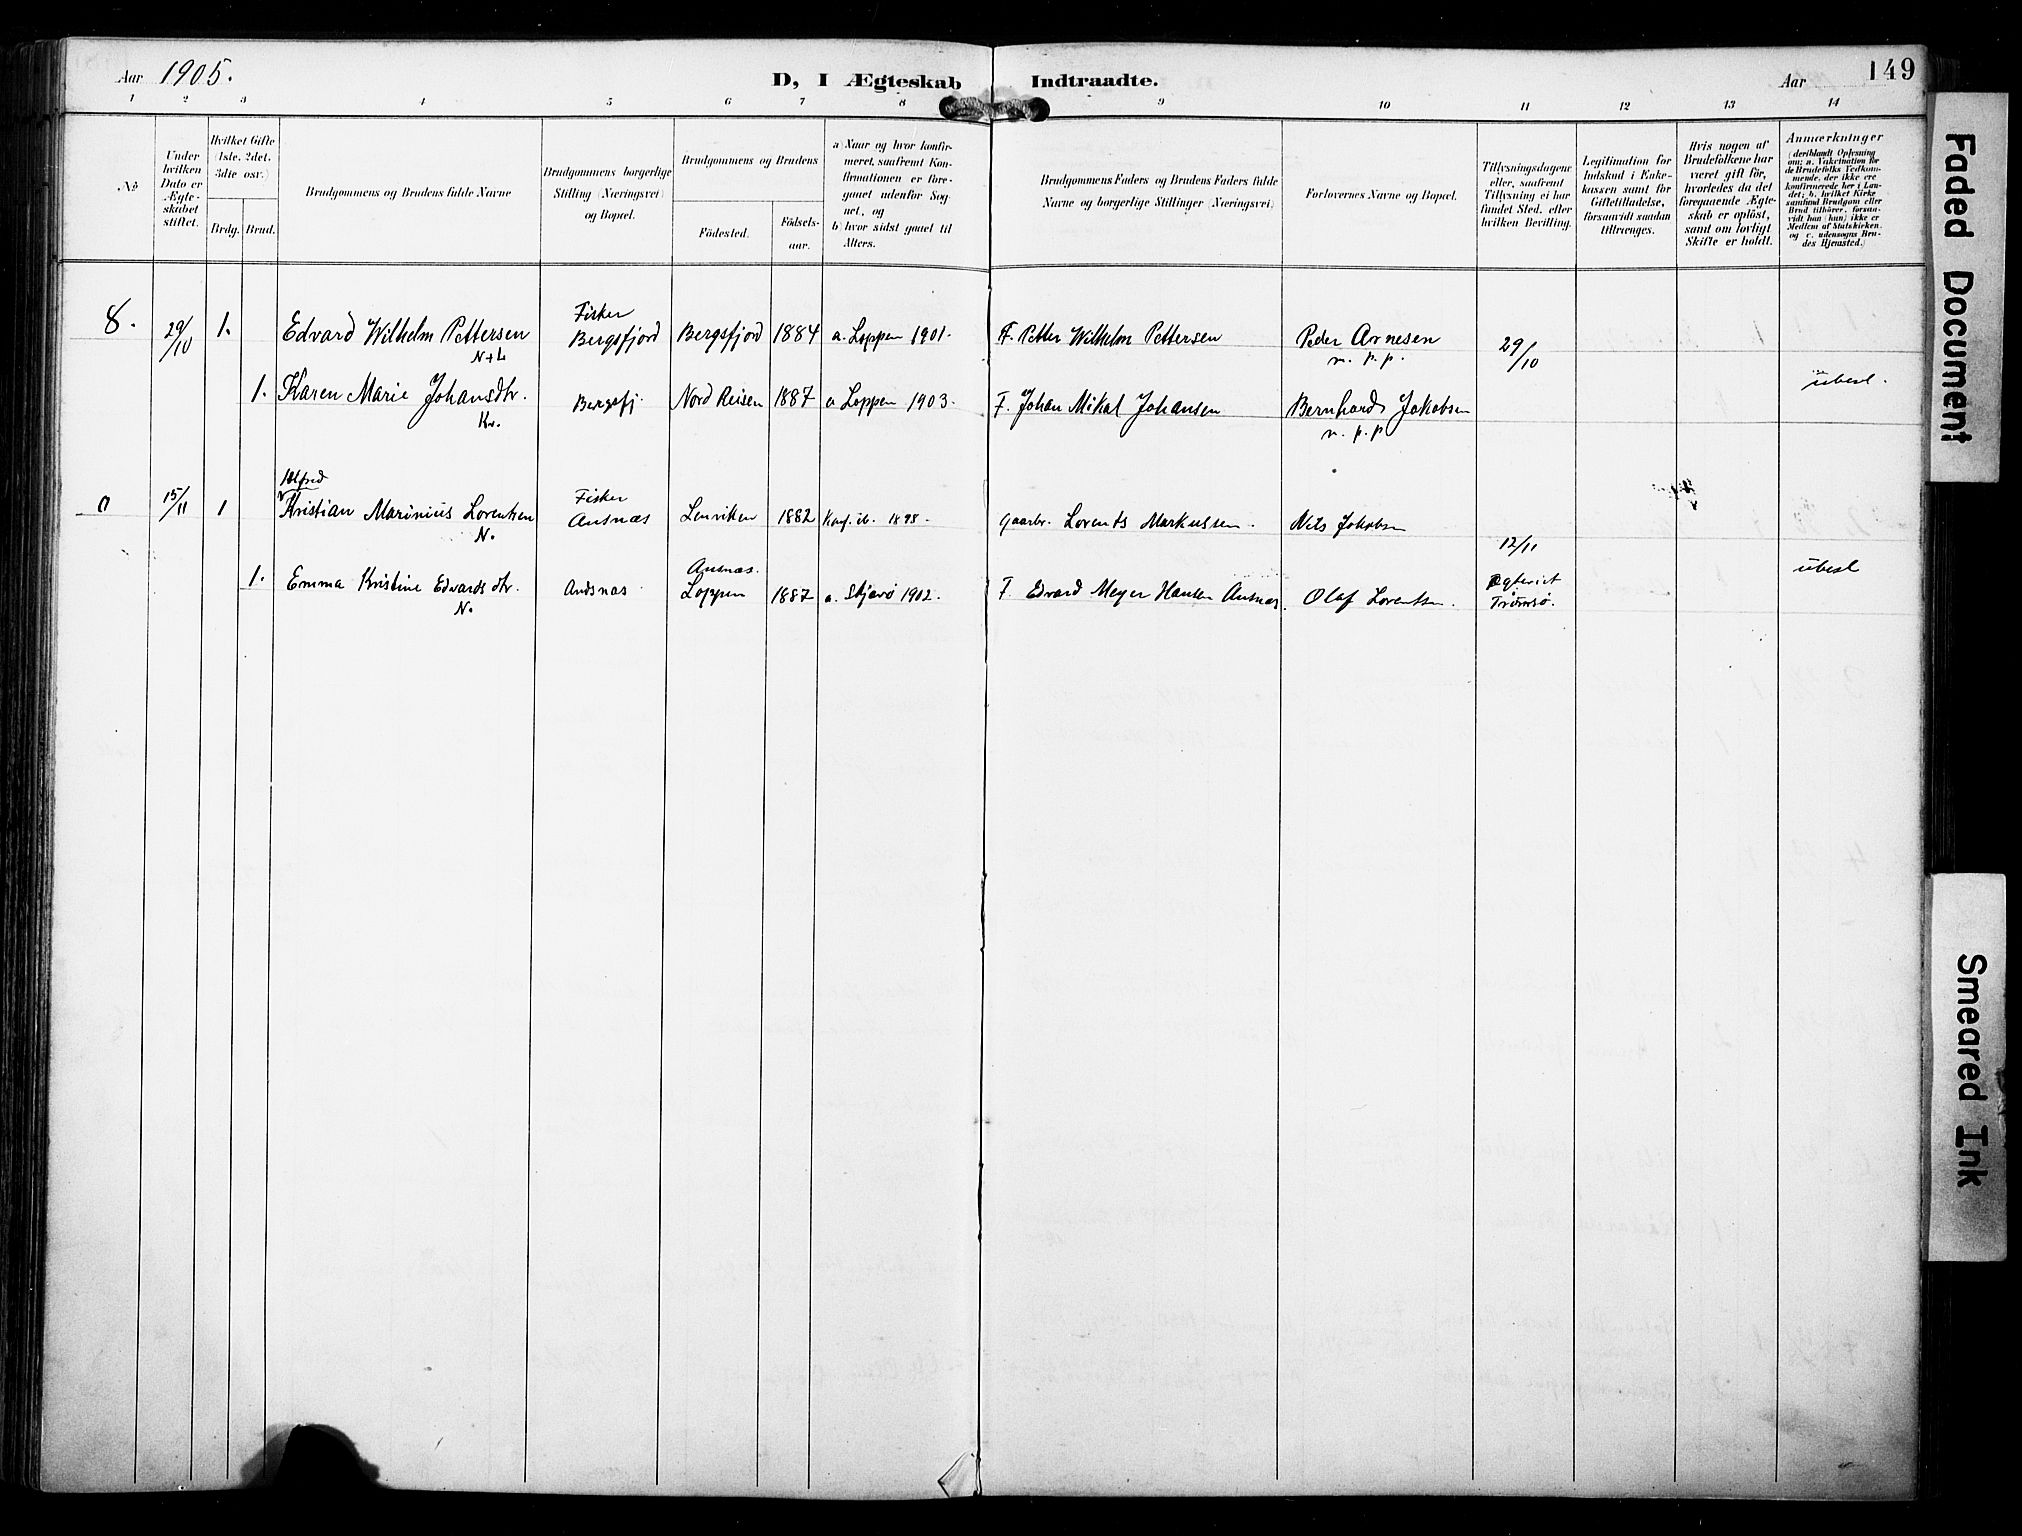 Aar 1905.
D, I Ægteskab Indtraadte.
Aar 149
1 2 3 4 5 6 7 8 9 10 11 12 13 14
No
Under hvilken Dato er Ægteskabet stiftet.
Hvilket Gifte (1ste, 2det, 3die osv.)
Brdg. Brud.
Brudgommens og Brudens fulde Navne
Brudgommens borgerlige Stilling (Næringsvei) og Bopæl.
Brudgommens og Brudens
Födested. Födselsaar.
a) Naar og hvor konfirmeret, saafremt Konfirmationen er foregaaet udenfor Sognet, og
b) hvor sidst gaaet til Alters.
Brudgommens Faders og Brudens Faders fulde Navne og borgerlige Stillinger (Næringsvei)
Forlovernes Navne og Bopæl.
Tillysningsdagene eller, saafremt Tillysning ei har fundet Sted, efter hvilken Bevilling.
Legitimation for Indskud i Enkekassen samt for Giftetilladelse, forsaavidt saadan tiltrænges.
Hvis nogen af Brudefolkene har været gift för, hvorledes da det foregaaende Ægteskab er oplöst, samt om lovligt Skifte er holdt.
Anmærkninger (deriblandt Oplysning om: a. Vakcination for de Brudefolks Vedkommende, der ikke ere konfirmerede her i Landet; b. hvilket Kirkesamfund Brudgom eller Brud tilhörer, forsaavidt han (hun) ikke er Medlem af Statskirken, og c. udensogns Brudes Hjemsted.)
8. 29/10 1. Edvard Wilhelm Pettersen N+L Fisker Bergsfjord Bergsfjord 1884 a. Loppen 1901. F. Petter Wilhelm Pettersen Peder Arnesen n. p. p. 29/10
1. Karen Marie Johansdtr. Kv. Bergsfj. Nord Reisen 1887 a Loppen 1903. F. Johan Mikal Johansen Bernhard Jakobsen n. p. p ubesl.
15/11 1 Alfred
Kristian Marinius Lorentsen N. Fisker Ansnæs Lenviken 1882 Konf. ib. 1898. Gaarbr. Lorents Markussen. Nils Jakobsen
12/11
1. Emma Kristine Edvardsdtr. N. Andsnas Ansnæs. Loppen 1887 a. Skjærvö 1902. F. Edvard Meyer Hansen Ansnæs. Olaf Lorentsen. Tromsö. ubesl
Faded Document
Smeared Ink